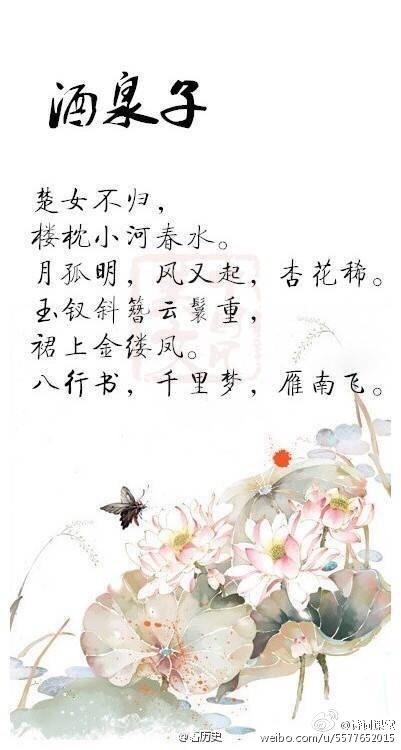 酒泉子
楚女不归，
楼枕小河春水。
月孤明，风又起，杏花稀。
玉钗斜簪云鬟重，
裙上金缕凤。
八行书，千里梦，雁南飞。
@看历史
weibo.com/u/5577652015